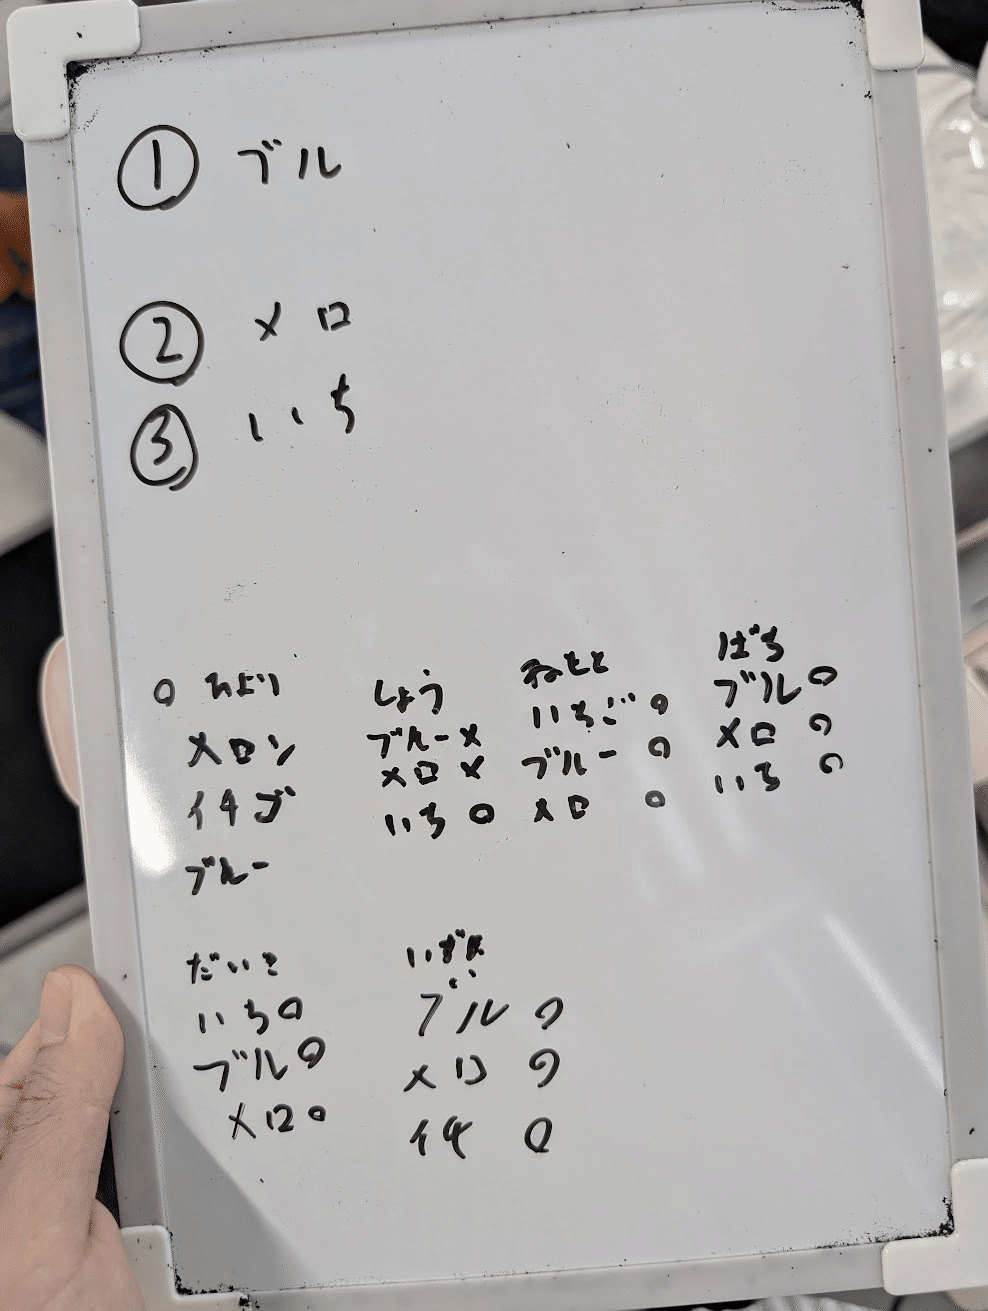 ① ブル
② メロ
③ いち
○ ひより
メロン
イチゴ
ブルー
しょう
ブルー×
メロ ×
いち ○
ねもと
いちご ○
ブルー ○
メロ ○
ばち
ブル ○
メロ ○
いち ○
だいき
いち○
ブル○
メロ○
ブル ○
メロ ○
イチ ○